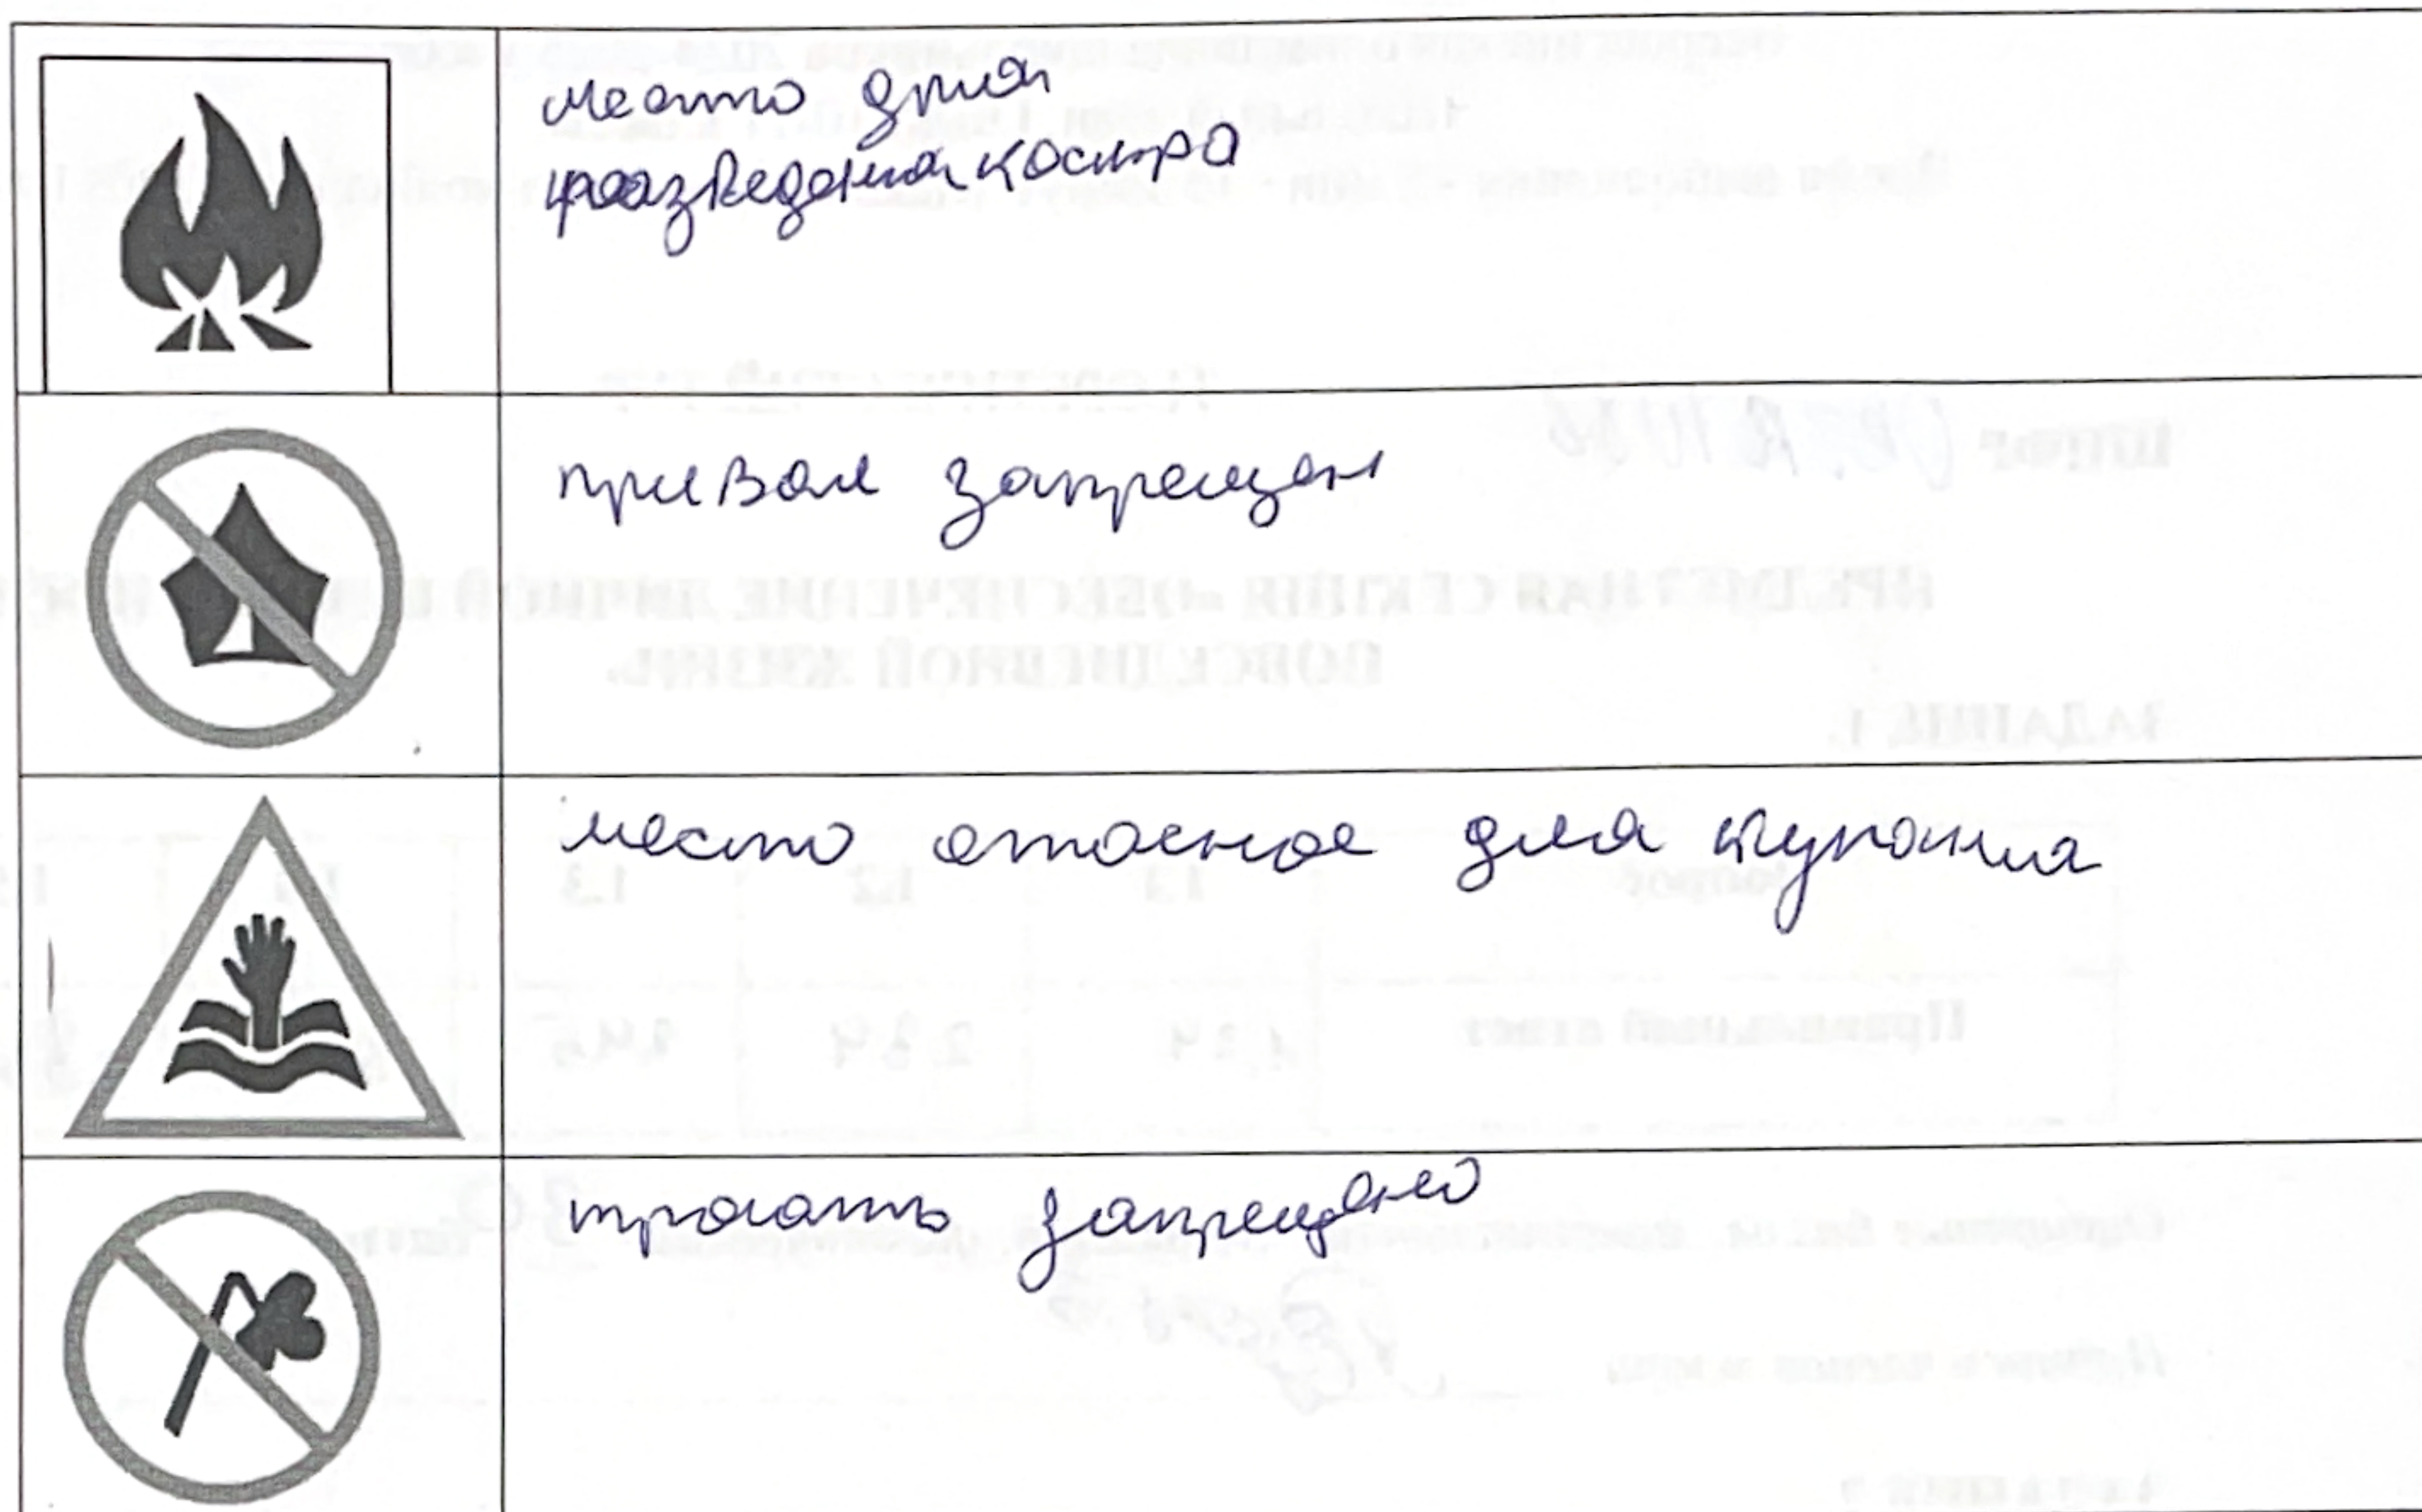 место для
разведения костра
привал запрещен
место опасное для купания
трогать запрещено